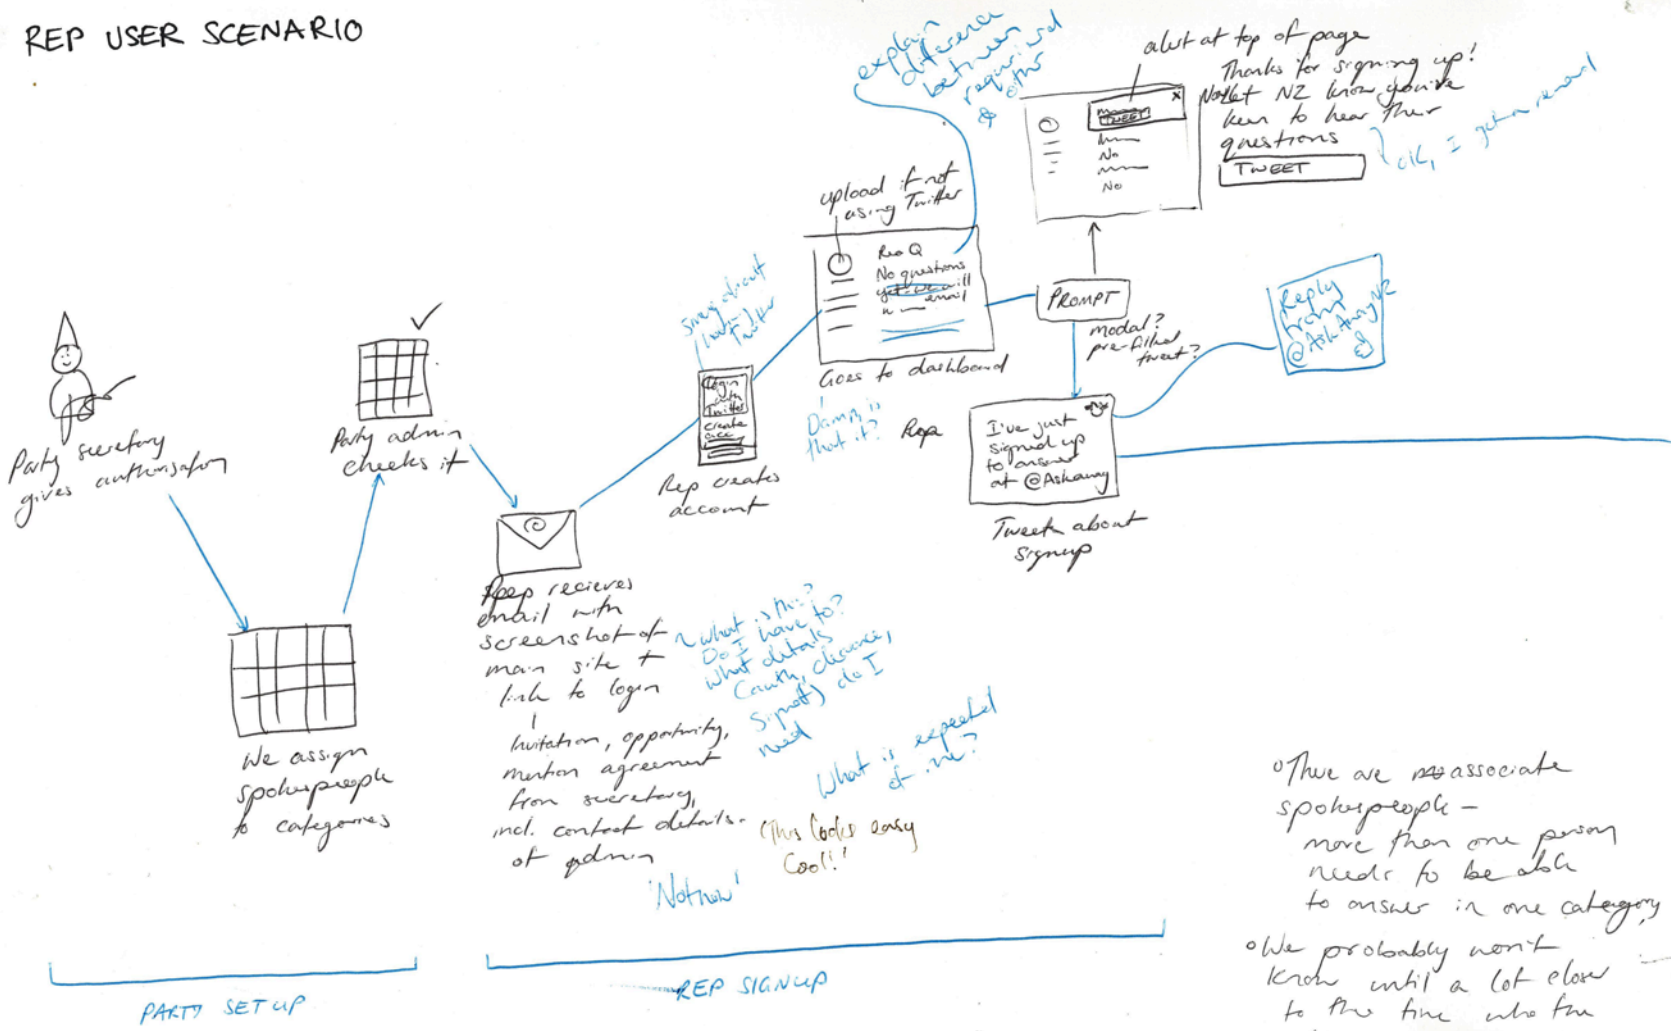 REP USER SCENARIO
Party secretary
gives authorisation
We assign
spokespeople
to categories
Party admin
checks it
Rep recieves
email with
screenshot of
main site +
link to login
Invitation, opportunity,
mention agreement
from secretary,
incl. contact details
of admin
'Not now'
~ what is this?
Do I have to?
what details
(auth, clearance,
signoff) do I
need
What is expected
of me?
'This looks easy
Cool!'
Login
with
Twitter
create
acc
Rep creates
account
Twitter
upload if not
using Twitter
Req Q
No questions
yet - we will
email
Goes to dashboard
Damn, is
that it?
explain
difference
between
required
&
other
PROMPT
modal?
pre-filled
tweet?
alert at top of page
TWEET
No
No
Thanks for signing up!
Now let NZ know you're
keen to hear their
questions
TWEET
OK, I get a reward
Reply
from
@AskAwayNZ
Rep
I've just
signed up
to answer
at @Askaway
Tweets about
signup
PARTY SET UP
REP SIGNUP
There are associate
spokespeople -
more than one person
needs to be able
to answer in one category
We probably won't
know until a lot closer
to the time who the